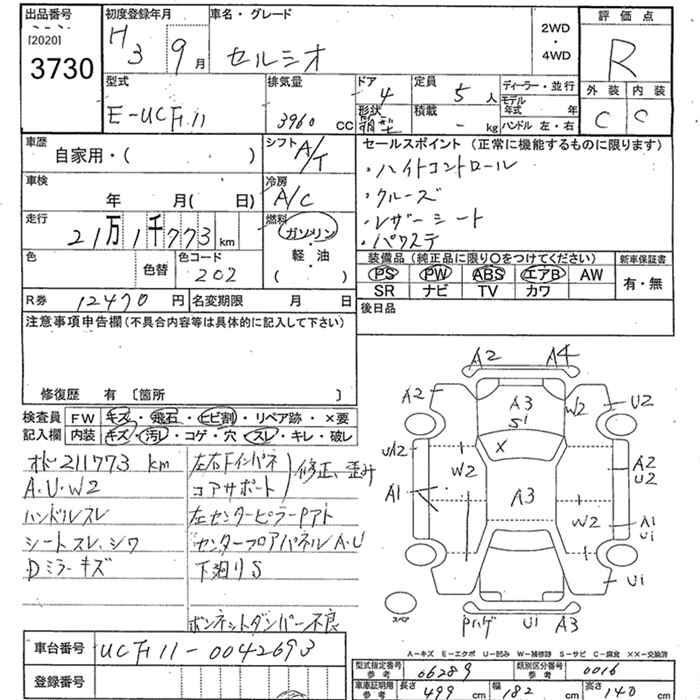 出品番号
[2020]
3730
初度登録年月
H3 9月
車名・グレード
セルシオ
2WD
・
4WD
評価点
R
外装 内装
C C
型式
E-UCF11
排気量
3960 CC
ドア
4
形状
箱型
定員
5人
積載
- kg
ディーラー・並行
モデル年式 年
ハンドル 左・右
車歴
自家用・( )
シフト
A/T
車検
年 月( 日)
冷房
A/C
走行
21万1千773km
燃料
ガソリン
・
軽・油
( )
色
色替
色コード
202
R券 12470円
名変期限 月 日
セールスポイント (正常に機能するものに限ります)
・ハイトコントロール
・クルーズ
・レザーシート
・パワステ
装備品 (純正品に限り○をつけてください)
PS PW ABS エアB AW
SR ナビ TV カワ
新車保証書
有・無
後日品
注意事項申告欄(不具合内容等は具体的に記入して下さい)
修復歴 有 〔箇所 〕
検査員記入欄
FW キズ・飛石・ヒビ割・リペア跡・×要
内装 キズ・汚レ・コゲ・穴・スレ・キレ・破レ
オド211773km
A・U・W2
ハンドルスレ
シートスレ、シワ
Dミラーキズ
左右Fインパネ
コアサポート
修正、歪み
左センターピラーPアト
センターフロアパネルA・U
下廻りS
ボンネットダンパー不良
A2 A4
A2 A3 W2 U2
S1
X
UA2 W2 A2
U2
A1 A3
W2 A1
U1
U1
スペア
Pハゲ U1 A3
A-キズ E-エクボ U-凹み W-補修跡 S-サビ C-腐食 ××-交換済
車台番号
UCF11-0042693
登録番号
型式指定番号
参考
06289
類別区分番号
参考
0016
車車証明用
参考
長さ 499cm
幅 182cm
高さ 140cm